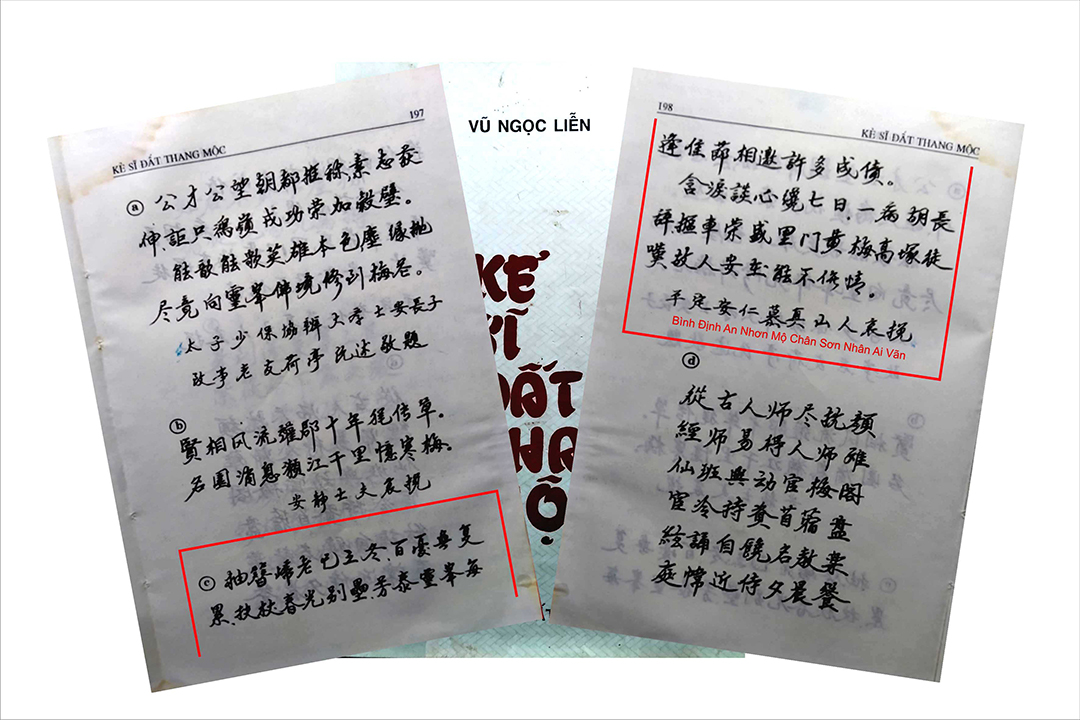 197
KẺ SĨ ĐẤT THANG MỘC
ⓐ 公才公望朝都推称素志获
伸、詎只鴻嶺戎功荣加穀璧。
能敵能歌英雄本色塵缘抛
尽竟向靈峯佛境修到梅花。
太子少保協辦大学士安長子
故事老友荷亭阮述敬題
ⓑ 賢相风流雍郡十年挹信草。
名園消息瀬江千里憶寒梅。
安静士夫哀挽
ⓒ 抽簪歸老巴立冬、百憂無复
累、扶杖春光别壘芳泰靈峯每
VŨ NGỌC LIỄN
KẺ
SĨ
ĐẤT
HA
Ộ
198
KẺ SĨ ĐẤT THANG MỘC
逢佳節相邀許多成债。
含淚談心纔七日、一病胡長
辞 車荣盛里门黃梅高塚徒
嘆故人安 能不伤情。
平定安仁慕真山人哀挽
Bình Định An Nhơn Mộ Chân Sơn Nhân Ai Vãn
ⓓ
從古人师尽抗顏
經师易得人师难
仙班興动官梅閣
宦冷持资苜蓿盘
絃誦自饒名教楽
庭幃近侍夕晨餐